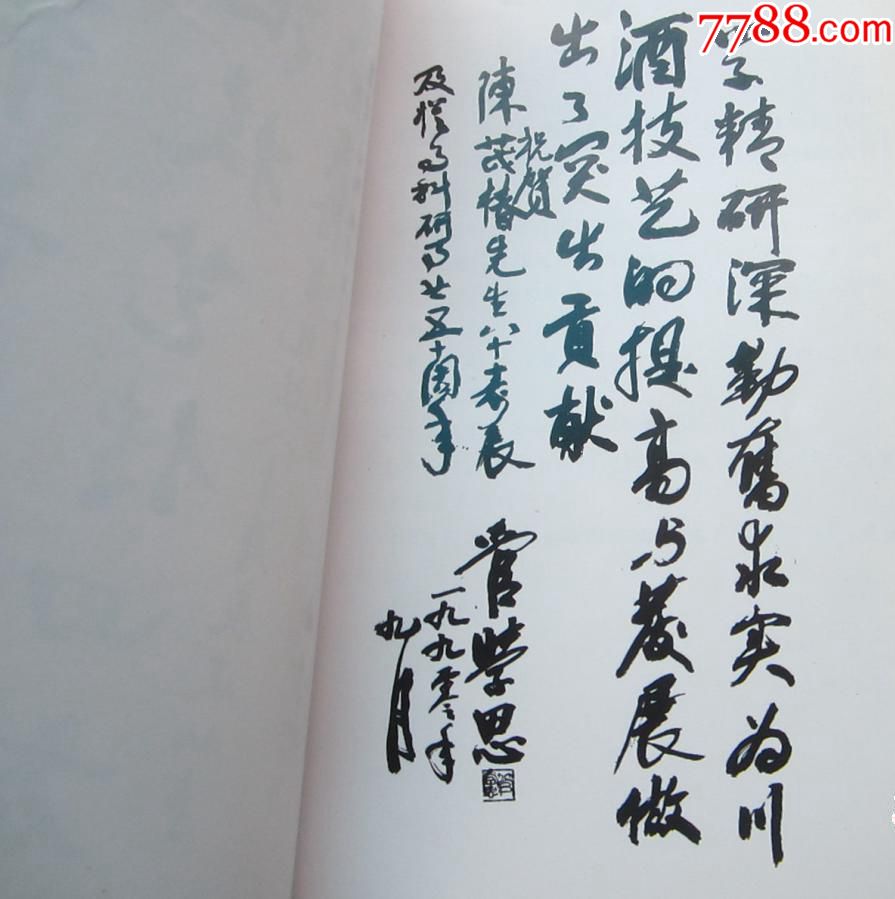 7788.com
学精研深勤奋求实为川
酒技艺的提高与发展做
出了突出贡献
祝贺
陳茂椿先生八十寿辰
及從事科研事业五十周年
管学思
一九九零年
九月